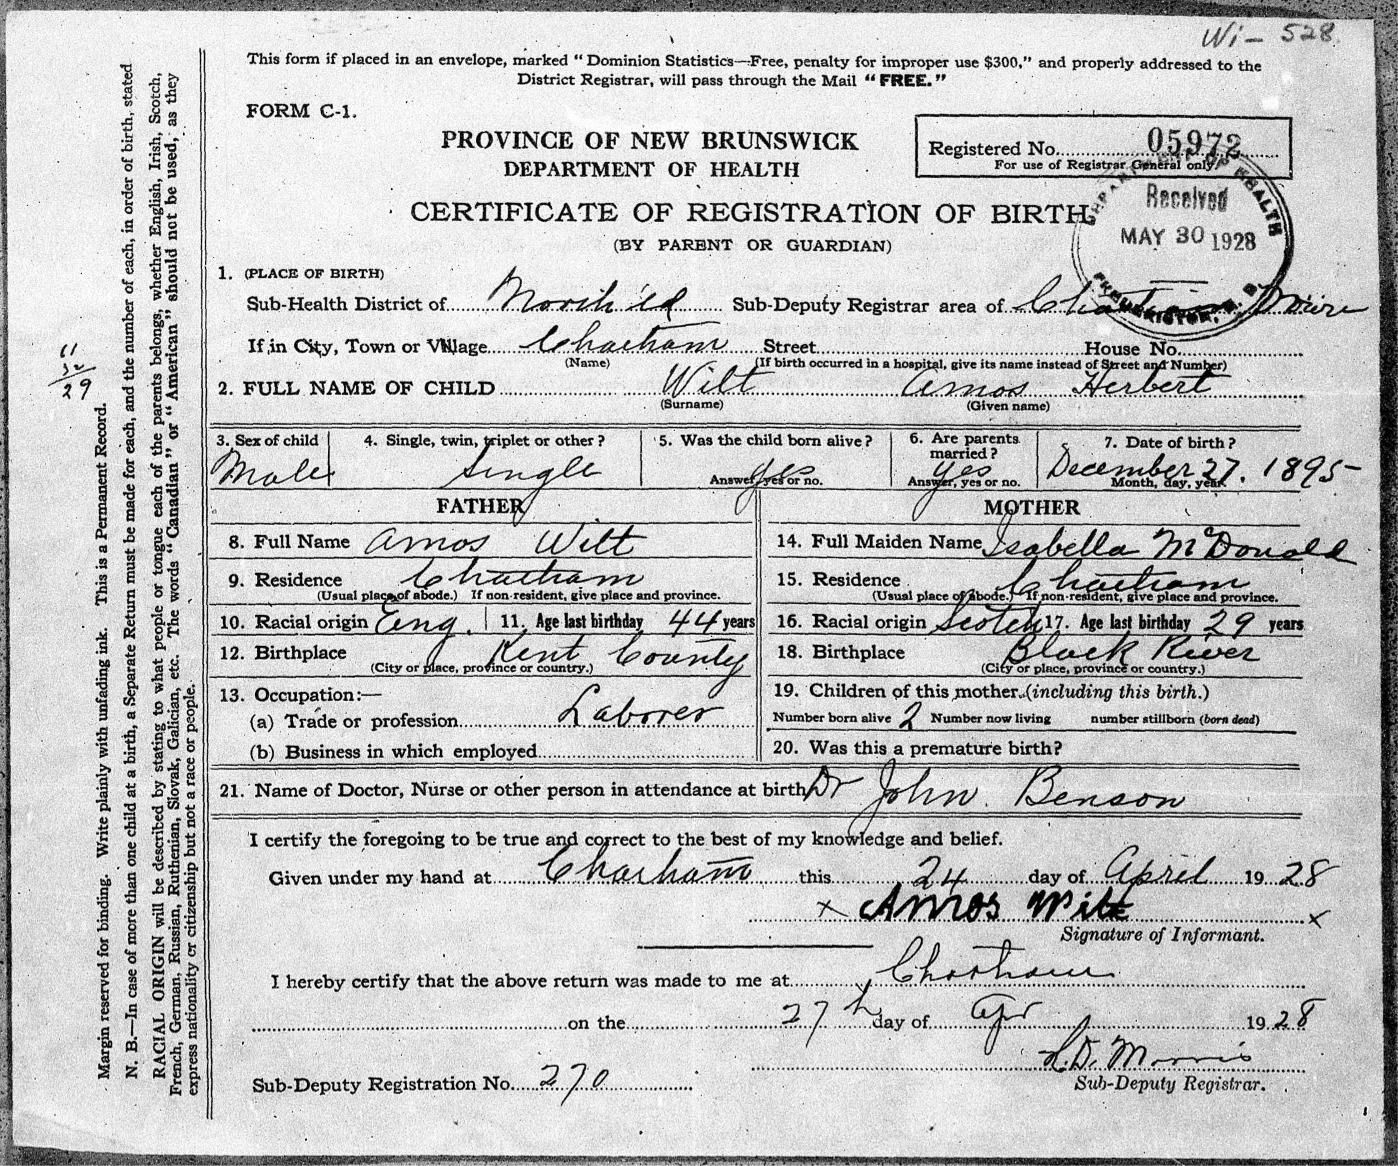 Wi- 528
This form if placed in an envelope, marked "Dominion Statistics—Free, penalty for improper use $300," and properly addressed to the
District Registrar, will pass through the Mail "FREE."
FORM C-1.
PROVINCE OF NEW BRUNSWICK
DEPARTMENT OF HEALTH
Registered No. 05972
For use of Registrar General only
CERTIFICATE OF REGISTRATION OF BIRTH
(BY PARENT OR GUARDIAN)
DEPARTMENT OF HEALTH
Received
MAY 30 1928
FREDERICTON, N. B.
1. (PLACE OF BIRTH)
Sub-Health District of Sub-Deputy Registrar area of
If in City, Town or Village Chatham Street House No.
(Name) (If birth occurred in a hospital, give its name instead of Street and Number)
2. FULL NAME OF CHILD Wilt Amos Herbert
(Surname) (Given name)
3. Sex of child 4. Single, twin, triplet or other? 5. Was the child born alive? 6. Are parents married? 7. Date of birth?
Male Single yes yes December 27. 1895
Answer, yes or no. Answer, yes or no. Month, day, year.
FATHER MOTHER
8. Full Name Amos Wilt 14. Full Maiden Name Isabella McDonald
9. Residence Chatham 15. Residence Chatham
(Usual place of abode.) If non-resident, give place and province. (Usual place of abode.) If non-resident, give place and province.
10. Racial origin Eng. 11. Age last birthday 44 years 16. Racial origin Scotch 17. Age last birthday 29 years
12. Birthplace Kent County 18. Birthplace Black River
(City or place, province or country.) (City or place, province or country.)
13. Occupation:— 19. Children of this mother (including this birth.)
(a) Trade or profession Laborer Number born alive 2 Number now living number stillborn (born dead)
(b) Business in which employed 20. Was this a premature birth?
21. Name of Doctor, Nurse or other person in attendance at birth Dr John Benson
I certify the foregoing to be true and correct to the best of my knowledge and belief.
Given under my hand at Chatham this 24 day of April 19 28
x Amos Wilt x
Signature of Informant.
I hereby certify that the above return was made to me at Chatham
on the 27th day of Apr 19 28
Morris
Sub-Deputy Registration No. 270 Sub-Deputy Registrar.
11
32
29
Margin reserved for binding. Write plainly with unfading ink. This is a Permanent Record.
N. B.—In case of more than one child at a birth, a Separate Return must be made for each, and the number of each, in order of birth, stated
RACIAL ORIGIN will be described by stating to what people or tongue each of the parents belongs, whether English, Irish, Scotch,
French, German, Russian, Ruthenian, Slovak, Galician, etc. The words "Canadian" or "American" should not be used, as they
express nationality or citizenship but not a race or people.